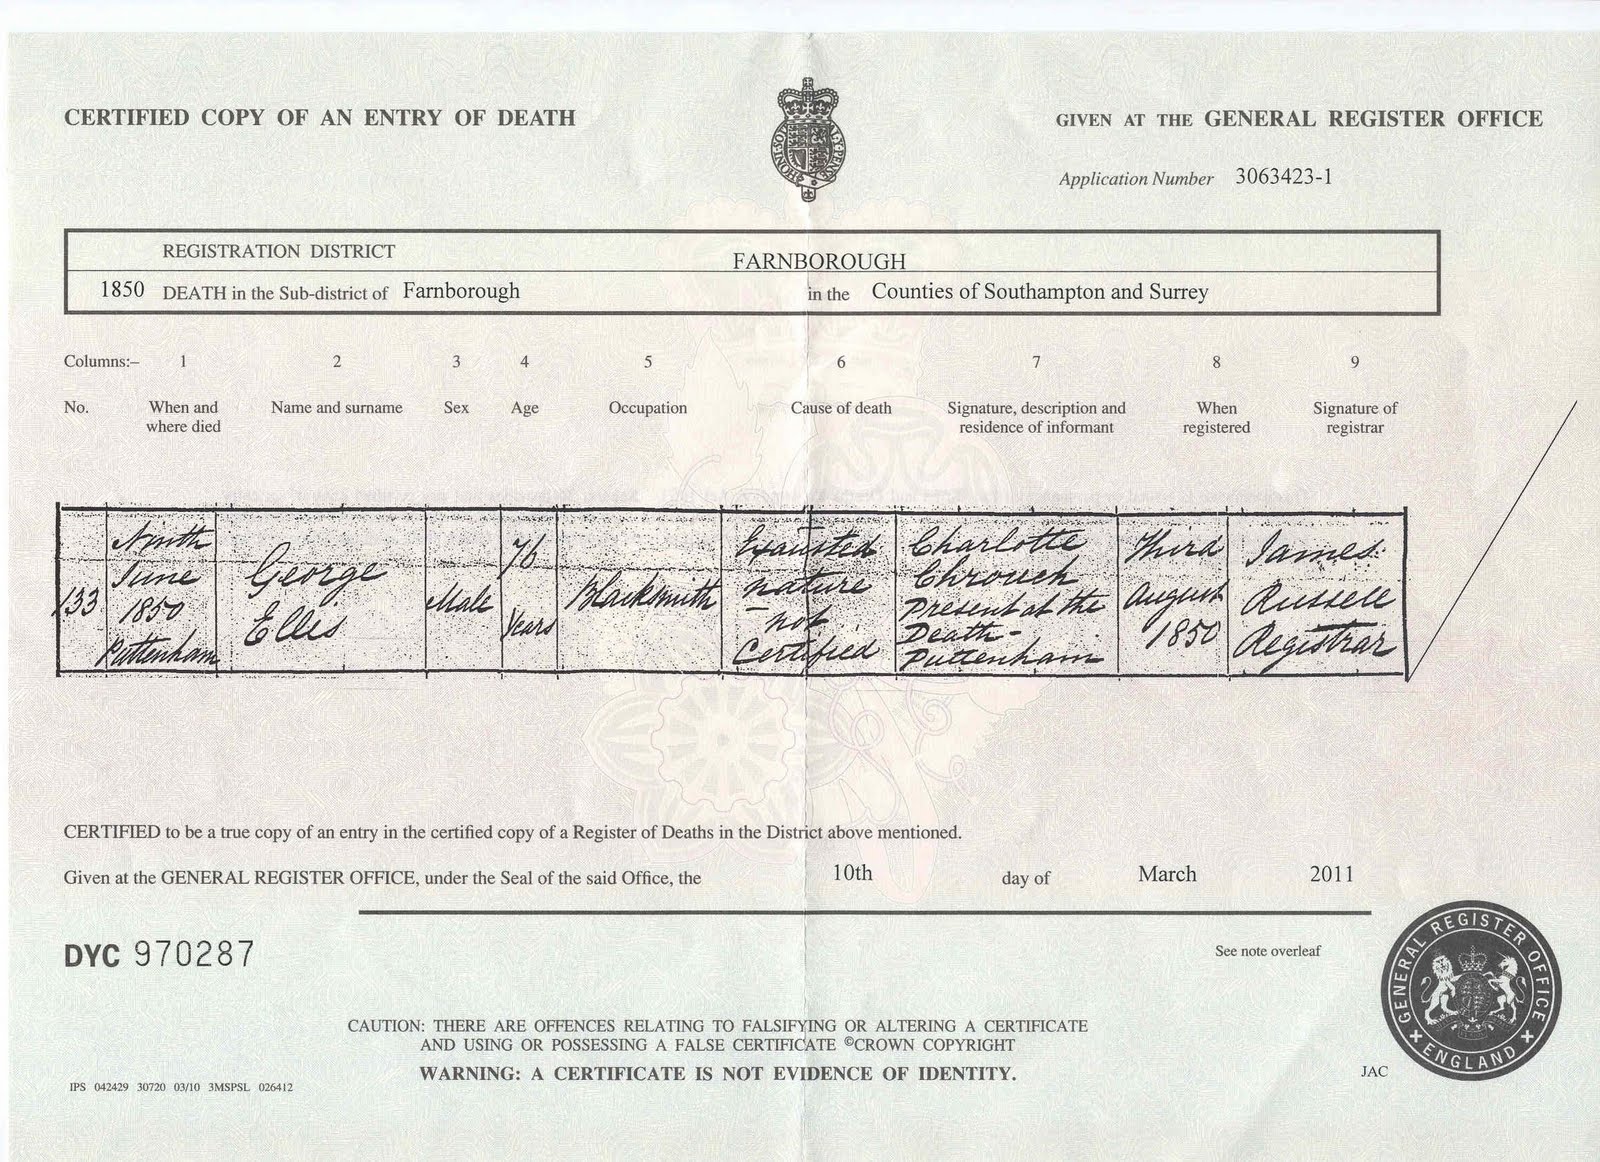 CERTIFIED COPY OF AN ENTRY OF DEATH
GIVEN AT THE GENERAL REGISTER OFFICE
Application Number 3063423-1
REGISTRATION DISTRICT FARNBOROUGH
1850 DEATH in the Sub-district of Farnborough in the Counties of Southampton and Surrey
Columns:– 1 2 3 4 5 6 7 8 9
No.
When and
where died
Name and surname
Sex
Age
Occupation
Cause of death
Signature, description and
residence of informant
When
registered
Signature of
registrar
133
Ninth
June
1850
Puttenham
George
Ellis
Male
76
Years
Blacksmith
Exausted
nature
not
Certified
Charlotte
Chrouch
Present at the
Death-
Puttenham
Third
August
1850
James
Russell
Registrar
CERTIFIED to be a true copy of an entry in the certified copy of a Register of Deaths in the District above mentioned.
Given at the GENERAL REGISTER OFFICE, under the Seal of the said Office, the 10th day of March 2011
DYC 970287
See note overleaf
GENERAL REGISTER OFFICE
ENGLAND
CAUTION: THERE ARE OFFENCES RELATING TO FALSIFYING OR ALTERING A CERTIFICATE
AND USING OR POSSESSING A FALSE CERTIFICATE ©CROWN COPYRIGHT
WARNING: A CERTIFICATE IS NOT EVIDENCE OF IDENTITY.
IPS 042429 30720 03/10 3MSPSL 026412
JAC